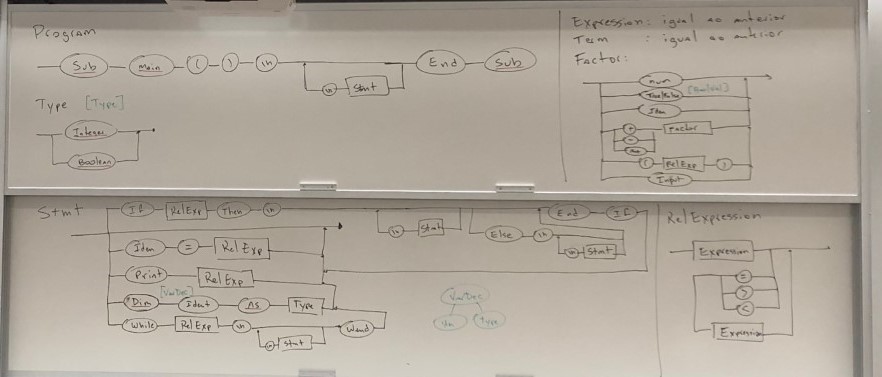 Program
Sub Main ( ) \n \n Stmt End Sub
Type [Type]
Integer
Boolean
Expression: igual ao anterior
Term : igual ao anterior
Factor:
num
True/False [Boolean]
Iden
+ Factor
-
( RelExp )
Input
Stmt
If RelExp Then \n \n Stmt Else \n \n Stmt End If
Iden = RelExp
Print RelExp
[VarDec]
Dim Ident As Type
While RelExp \n \n Stmt Wend
VarDec
Type
RelExpression
Expression
=
>
<
Expression